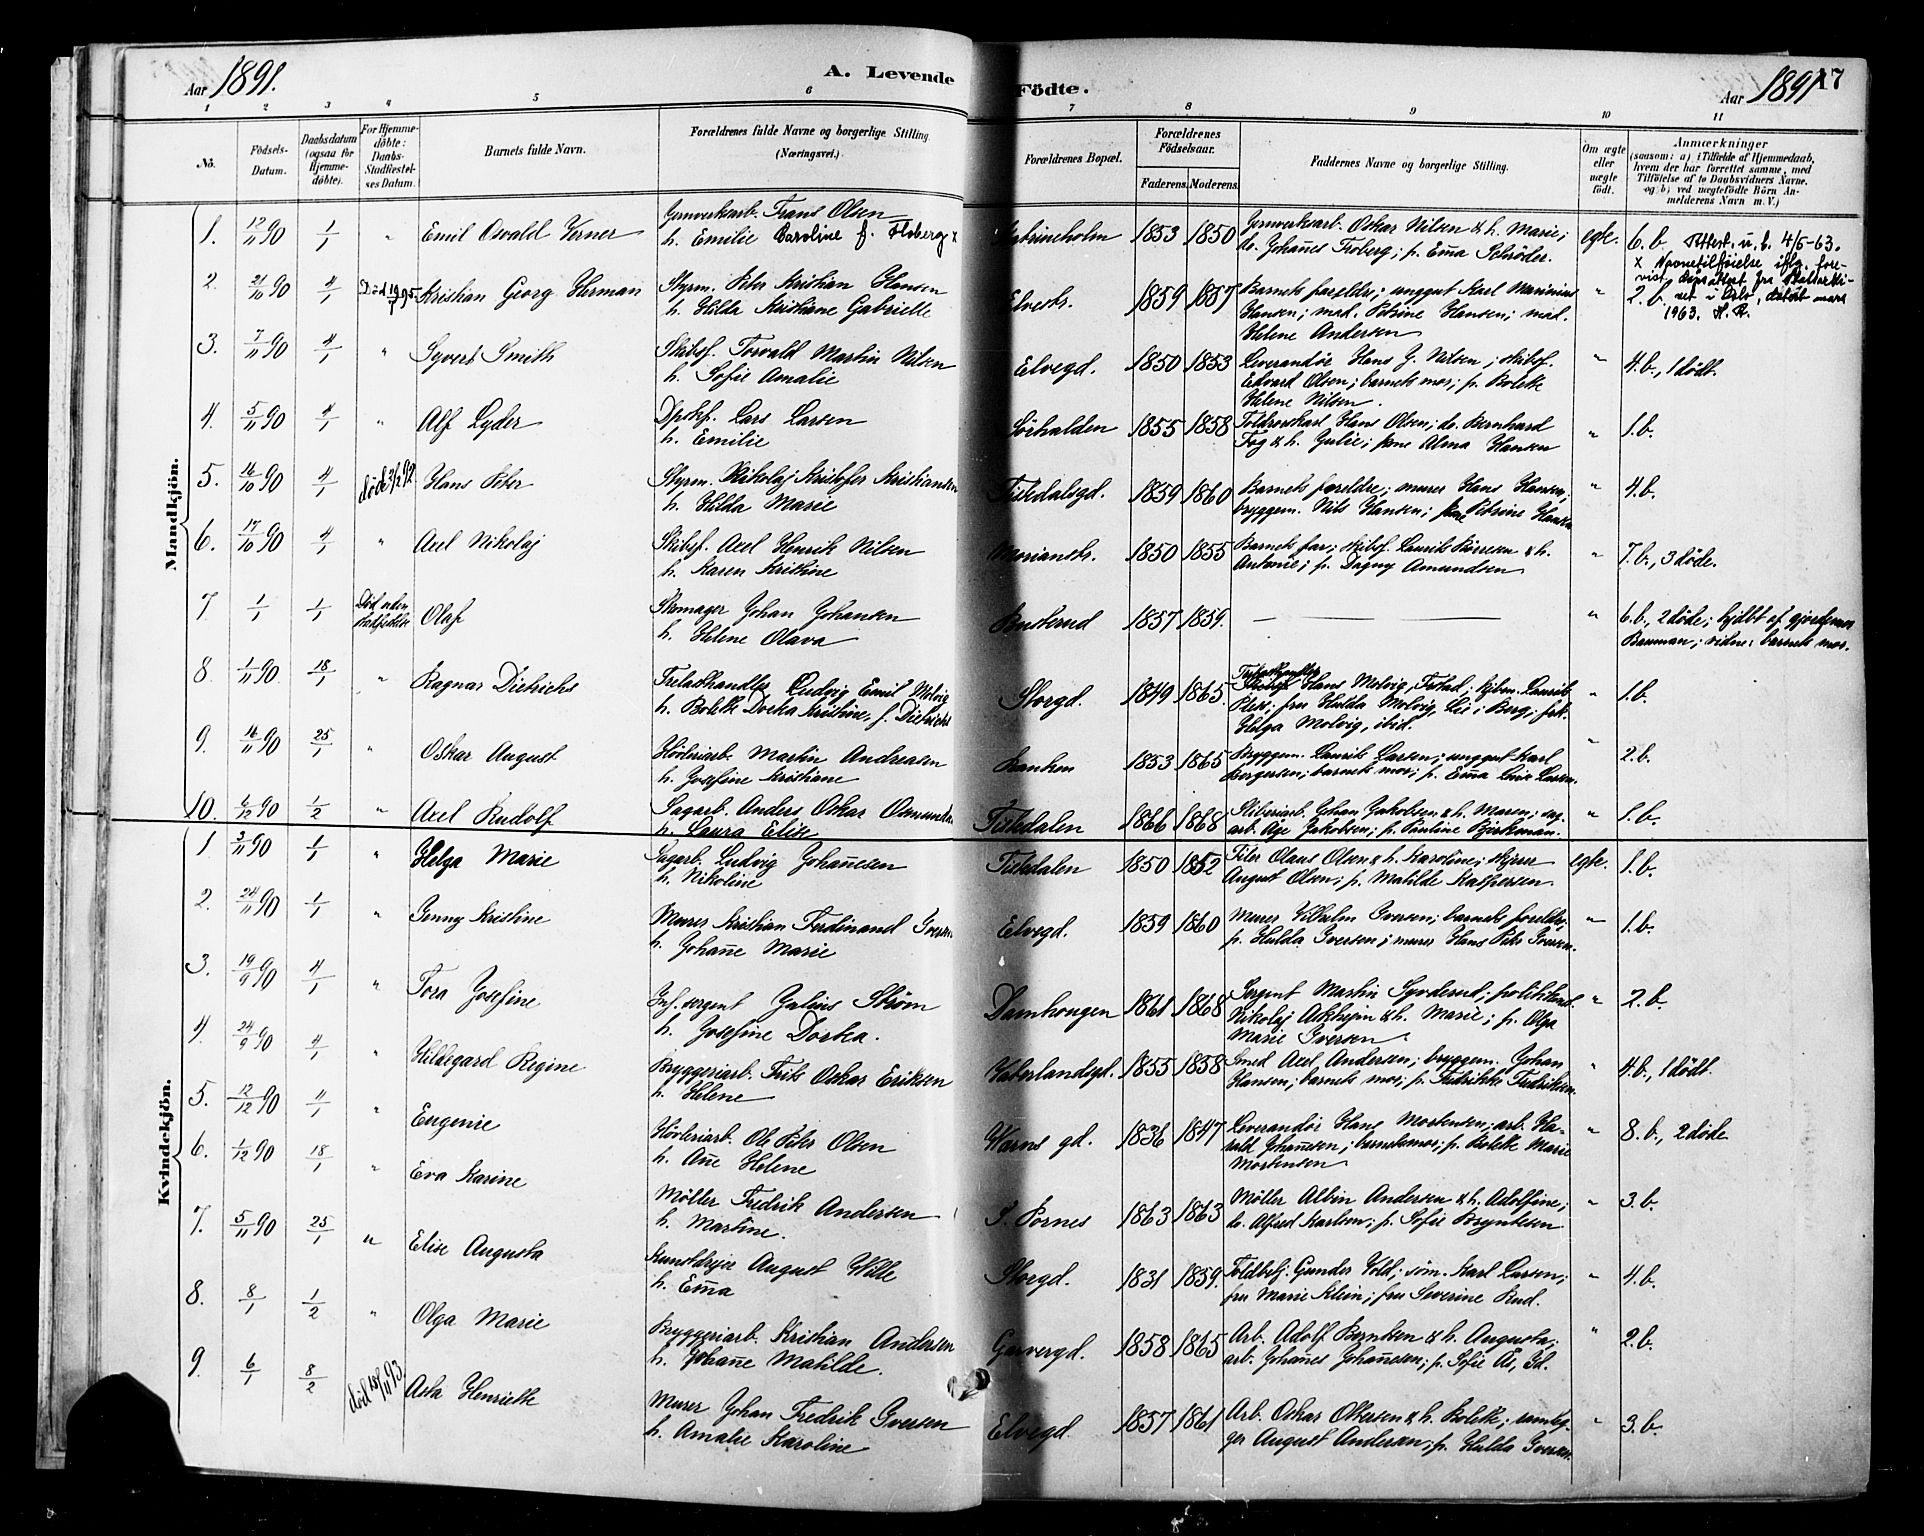 Aar 1891.
A. Levende Födte.
Aar 1891
17
1 2 3 4 5 6 7 8 9 10 11
No. Födsels-Datum. Daabsdatum (ogsaa for Hjemme-døbte). For Hjemme-døbte: Daabs-Stadfæstel-ses Datum. Barnets fulde Navn. Forældrenes fulde Navne og borgerlige Stilling. (Næringsvei.) Forældrenes Bopæl. Forældrenes Födselsaar. Faderens. Moderens. Faddernes Navne og borgerlige Stilling. Om ægte eller uægte født.
Anmærkninger
(saasom: a) i Tilfælde af Hjemmedaab,
hvem der har forrettet samme, med
Tilføielse af to Daabsvidners Navne,
og b) ved uægtefödte Börn An-
melderens Navn m. V.)
Mandkjön.
1. 12/11 90 1/1 " Emil Osvald Verner
Jernverksarb. Frans Olsen
h. Emilie Caroline f. x
1853 1850
Jernverksarb. Oskar Nilsen & h. Marie;
do. Johañes Froberg; p. Em̃a Schrøder.
egte. 6. b. Attest. u. b. 4/5-63.
x Navnetilføielse iflg. fore-
1963.
2. 21/10 90 4/1 Kristian Georg Herman
Styrm. Peter Kristian Hansen
h. Hilda Kristiane Gabrielle
1859 1857
Barnets forældre; unggut Karl Marinius
Hansen; mad. Petrine Hansen; mad.
Helene Andersen
" 2. b.
3. 7/11 90 4/1 " Syvert Smith
Skibsf. Torvald Martin Nilsen
h. Sofie Amalie
Elvegd. 1850 1853
Leverandør Hans J. Nilsen; skibsf.
Edvard Olsen; barnets mor; p. Bolette
Helene Nilsen.
" 4. b., 1 dødt.
4. 5/11 90 4/1 " Alf Lyder
Dpskf. Lars Larsen
h. Emilie
Sørhalden 1855 1858
Hans Olsen; do. Bernhard
Fog & h. Julie; Alma Hansen
" 1. b.
5. 14/10 90 4/1 død 2/2 92 Hans Peter
Styrm. Nikolaj Kristofer Kristiansen
h. Hilda Marie
Tistedalsgd. 1859 1860
Barnets forældre; murer Hans Hansen;
bryggem. Nils Hansen; Petrine Hansen
" 4. b.
6. 17/10 90 4/1 " Axel Nikolaj
Skibsf. Axel Henrik Nilsen
h. Karen Kristine
1850 1855
Barnets far; skibsf. Laurits Børresen & h.
Antonie; p. Dagny Amundsen
" 7. b., 3 døde.
7 1/1 1/1 Død uden Olaf
Skomager Johan Johansen
h. Helene Olava
Busterud 1857 1859.
" 6. b., 2 døde; hjdbt af gjordemor
Bauman; vidne: barnets mor.
8. 1/11 90 18/1 " Ragnar Dietrichs
Trælasthandler Ludvig Emil Molvig
h. Bolette Dorthea Kristine, f. Dietrichs
Storgd. 1849 1865.
Hans Molvig, Tistad; kjbm. Laurits
Pless; fru Hulda Molvig, i Berg; frk.
Helga Molvig, ibid.
" 1. b.
9. 16/11 90 25/1 " Oskar August
Høvleriarb. Martin Andreasen
h. Josefine Kristiane
Banken 1853 1865
Bryggem. Laurits Larsen; unggut Karl
Borgersen; barnets mor; p. Em̃a Larsen.
" 2. b.
10. 6/12 90 1/2 " Axel Rudolf
Sagarb. Anders Oskar Osmundsen
h. Laura Elise
Tistedalen 1866 1868
Sliberiarb. Johan Jakobsen & h. Maren; sag-
arb. Aje Jakobsen; p. Pauline Bjørkman.
" 1. b.
Kvindekjön.
1. 3/11 90 1/1 " Helga Marie
Sagarb. Ludvig Johañesen
h. Nikoline
Tistedalen 1850 1852
Filer Olaus Olsen & h. Karoline; skjærer
August Olsen; p. Matilde Kaspersen.
egte. 1. b.
2. 24/11 90 1/1 " Jenny Kristine
Murer Kristian Ferdinand Iversen
h. Johañe Marie
Elvegd. 1859 1860
Murer Vilhelm Iversen; barnets foreldre;
p. Hulda Iversen; murer Hans Peter Iversen.
" 1. b.
3. 19/9 90 4/1 " Tora Josefine
Inf. sergent Julius Strøm
h. Josefine Dorthea.
Damhougen 1861 1868
Sergent Martin Synderud; politikonst.
Nikolaj Askheim & h. Marie; p. Olga
Marie Iversen.
" 2. b.
4. 24/9 90 4/1 " Hildegard Regine
Bryggeriarb. Frits Oskar Eriksen
h. Helene
Vaterlandsgd. 1855 1858
Smed Axel Andersen; bryggem. Johan
Hansen; barnets mor; p. Fredrikke Fredriksen.
" 4. b., 1 dødt.
5. 12/12 90 11/1 " Eugenie
Høvleriarb. Ole Peter Olsen
h. Añe Helene
Warns gd. 1856 1847
Leverandør Hans Mortensen; arb. Ha-
rald Johañesen; barnets mor; p. Bolette Marie
Mortensen
" 8. b., 2 døde.
6. 1/12 90 18/1 " Eva Karine
Møller Fredrik Andersen
h. Martine.
S. Pornes 1863 1863
Møller Albin Andersen & h. Adolfine;
do. Alfred Karlsen; p. Sofie Bryntesen
" 3. b.
7. 5/11 90 25/1 " Elise Augusta
Kunstdrejer August Wille
h. Em̃a
Storgd. 1831 1859.
Toldbetj. Gunder Vold; søm. Karl Larsen;
fru Marie Klein; fru Severine Rud.
" 4. b.
8. 8/1 1/2 " Olga Marie
Bryggeriarb. Kristian Andersen
h. Johañe Matilde.
Garvergd. 1858 1865
Arb. Adolf Berntsen & h. Augusta;
arb. Johañes Johañesen; p. Sofie Ås, Id.
" 2. b.
9. 6/1 8/2 død 18/11 93 Asta Henriette
Murer Johan Fredrik Iversen
h. Amalie Karoline
Elvegd. 1857 1861
Arb. Oskar Ottersen & h. Bolette;
August Andersen; p. Hulda Iversen.
" 3. b.